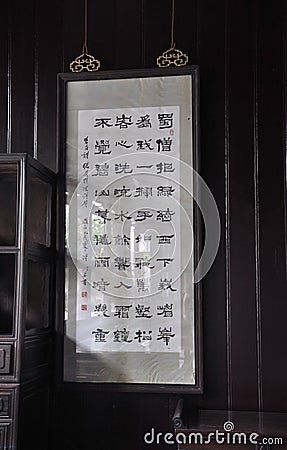 蜀僧抱綠綺西下峩眉峯
爲我一揮手如聽萬壑松
客心洗流水餘響入霜鐘
不覺碧山暮秋雲暗幾重
dreamstime.com